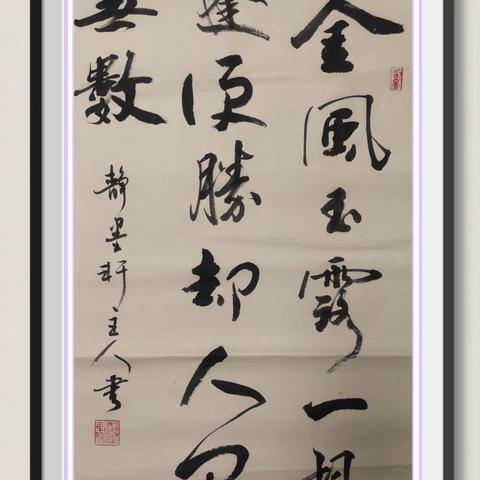 金風玉露一相
逢便勝却人間
無數
靜墨軒主人書